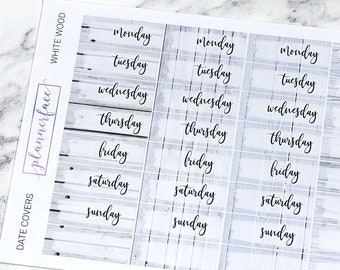 WHITE WOOD
plannerface
DATE COVERS
monday
tuesday
wednesday
thursday
friday
saturday
sunday
monday
tuesday
wednesday
thursday
friday
saturday
sunday
monday
tuesday
wednesday
thursday
friday
saturday
sunday